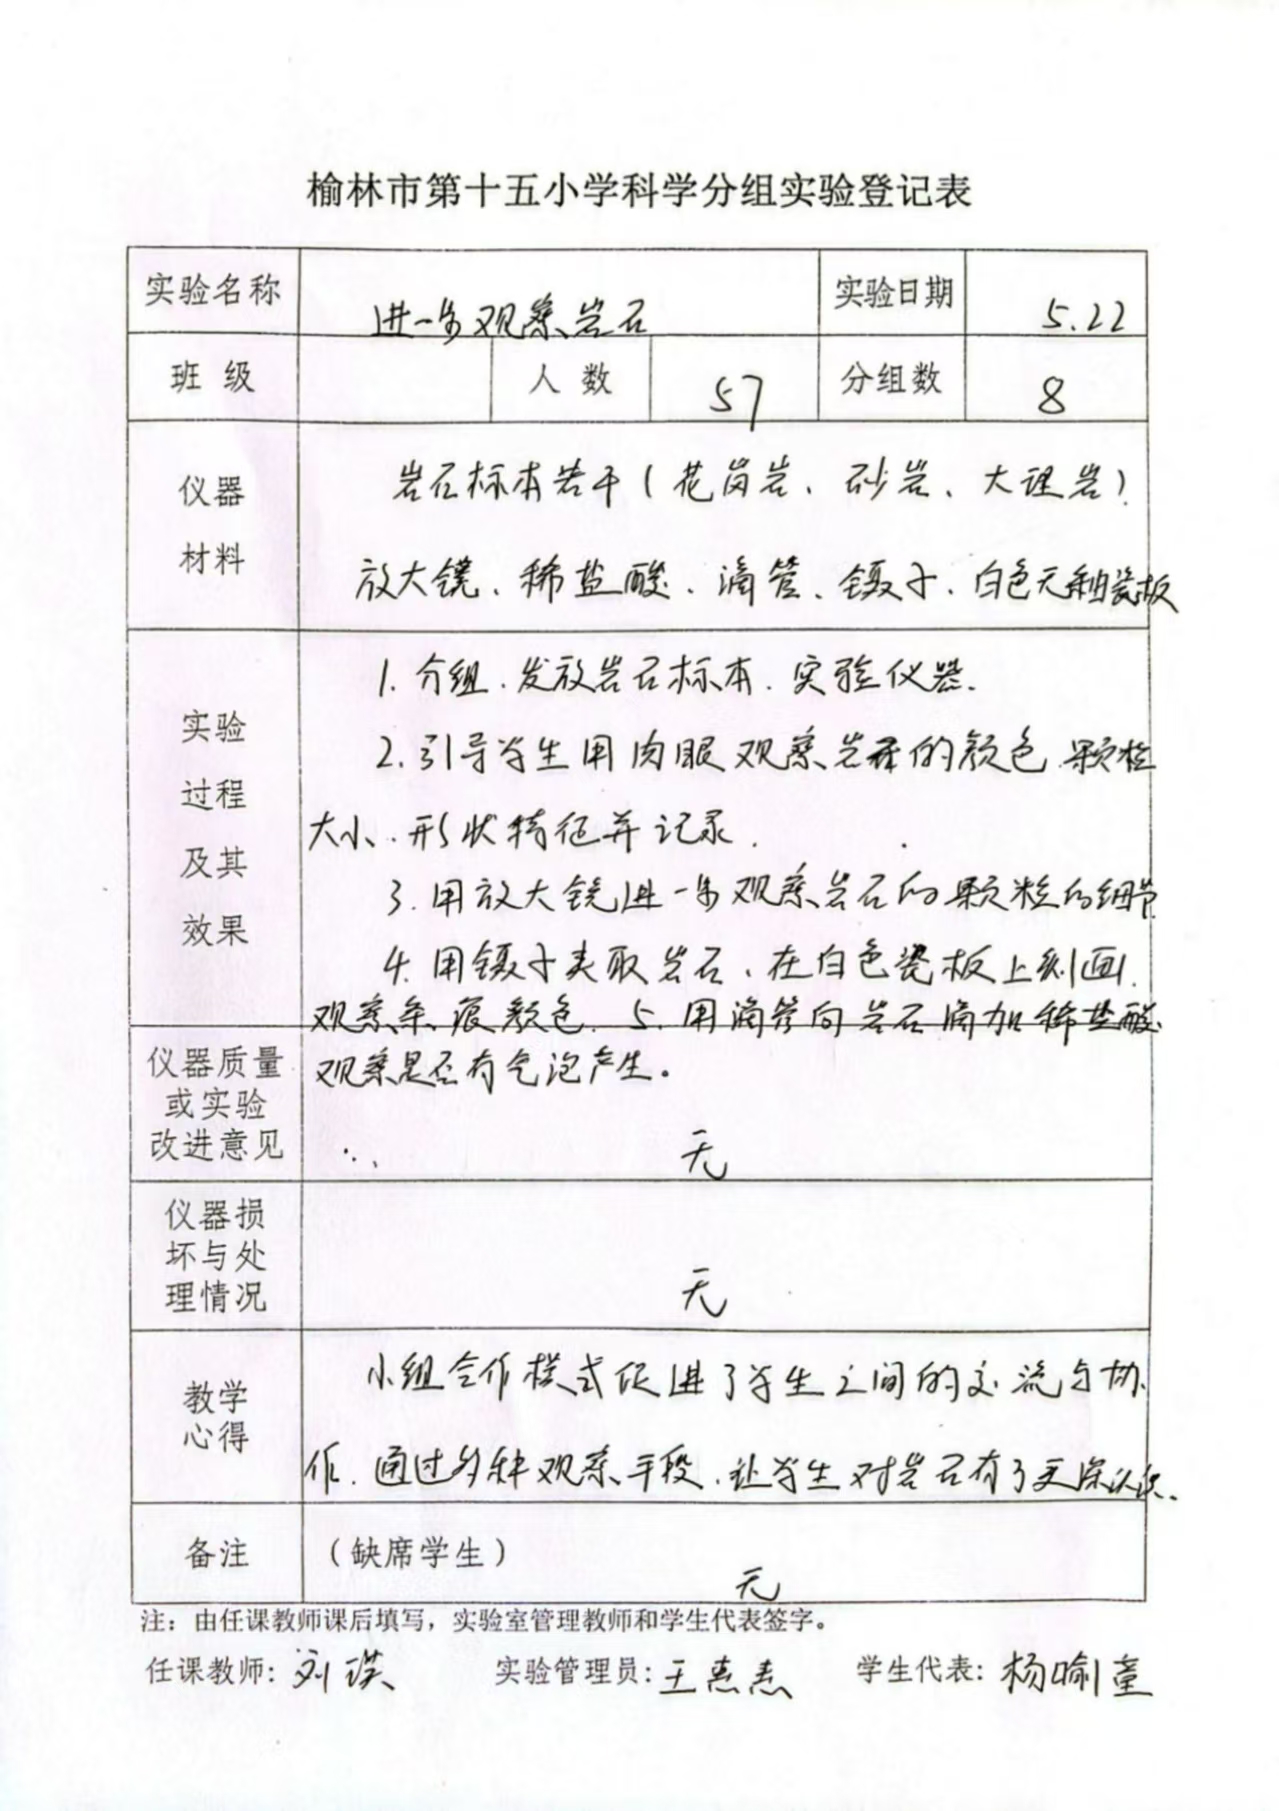 榆林市第十五小学科学分组实验登记表
实验名称 进一步观察岩石 实验日期 5.22
班 级 人 数 57 分组数 8
仪器
材料
岩石标本若干(花岗岩、砂岩、大理岩)
放大镜、稀盐酸、滴管、镊子、白色无釉瓷板
实验
过程
及其
效果
1. 分组、发放岩石标本、实验仪器.
2. 引导学生用肉眼观察岩石的颜色、颗粒
大小、形状特征并记录.
3. 用放大镜进一步观察岩石的颗粒的细节
4. 用镊子夹取岩石、在白色瓷板上刻画.
观察条痕颜色. 5. 用滴管向岩石滴加稀盐酸
观察是否有气泡产生。
仪器质量
或实验
改进意见
无
仪器损
坏与处
理情况
无
教学
心得
小组合作模式促进了学生之间的交流与协
作. 通过多种观察手段、让学生对岩石有了更深认识.
备注 (缺席学生)
无
注：由任课教师课后填写，实验室管理教师和学生代表签字。
任课教师: 刘瑛 实验管理员: 王 学生代表: 杨喻童